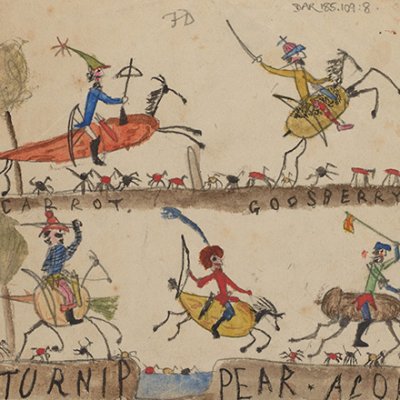 DAR 185.109:8.
FD
CARROT. GOOSBERRY
TURNIP PEAR · ACO